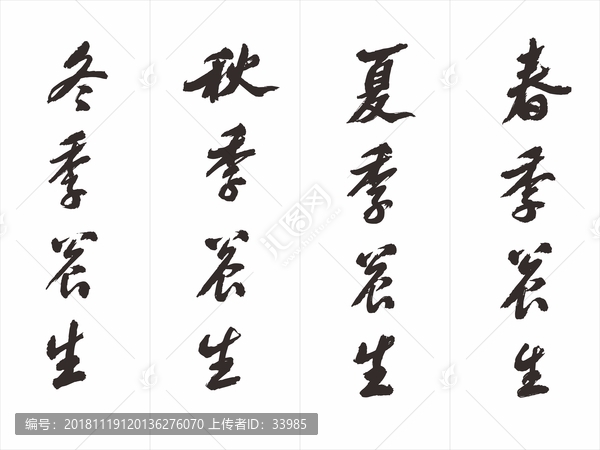 春季养生
夏季养生
秋季养生
冬季养生
编号：20181119120136276070 上传者ID：33985